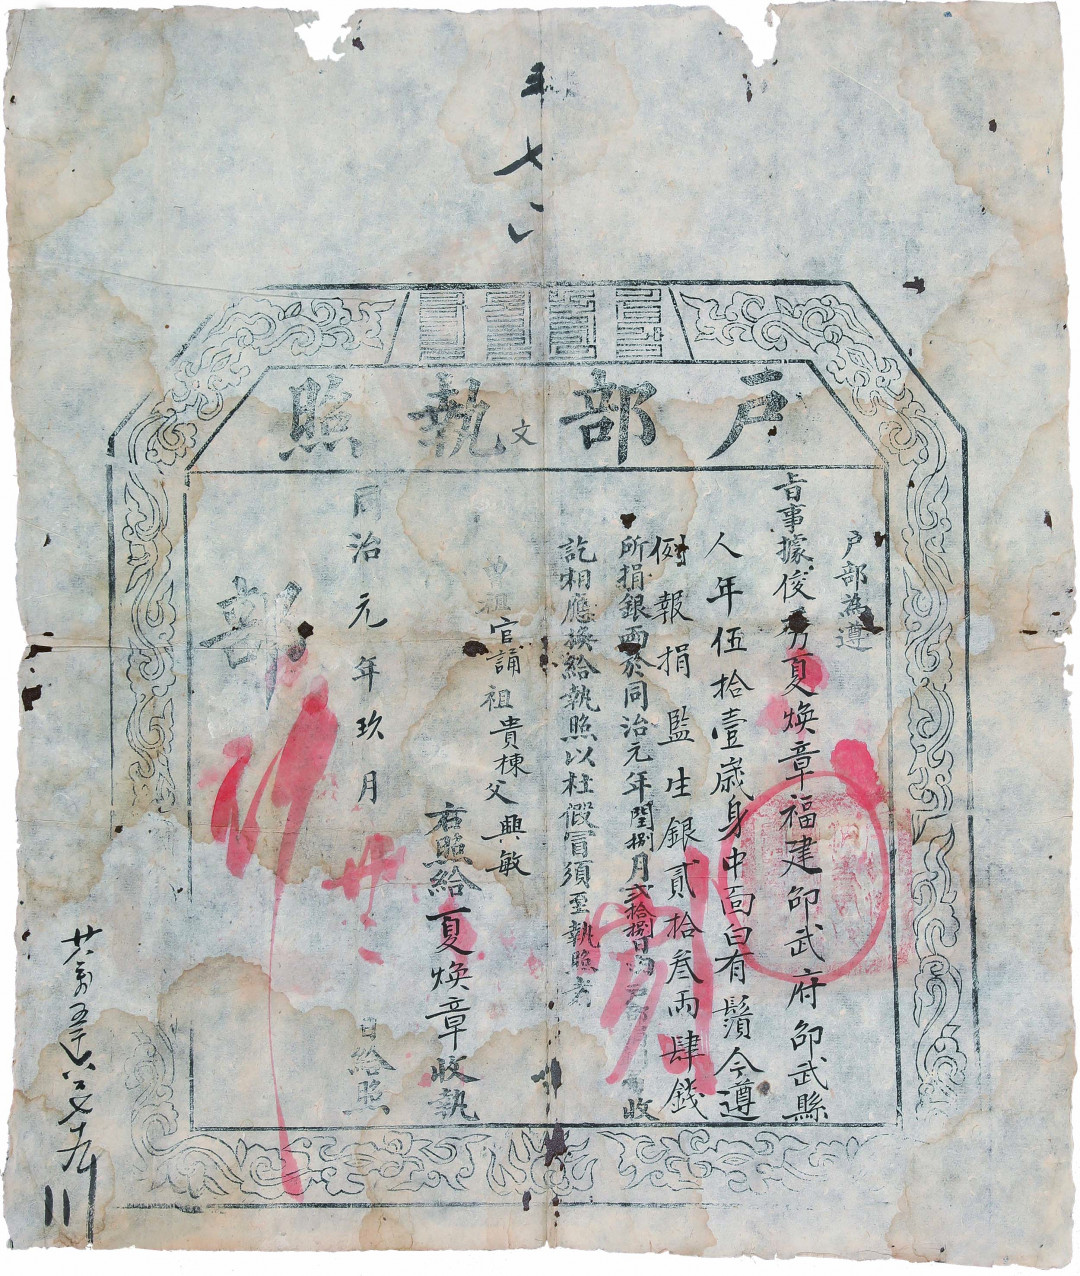 戶部執照
戶部為遵
旨事據俊秀夏煥章福建邵武府邵武縣
人年伍拾壹歲身中面白有鬚今遵
例報捐監生銀貳拾叁兩肆錢
所捐銀兩於同治元年閏捌月貳拾捌日由戶部收
訖相應換給執照以杜假冒須至執照者
曾祖官誦祖貴棟父興敏
右照給夏煥章收執
同治元年玖月廿日給照
部